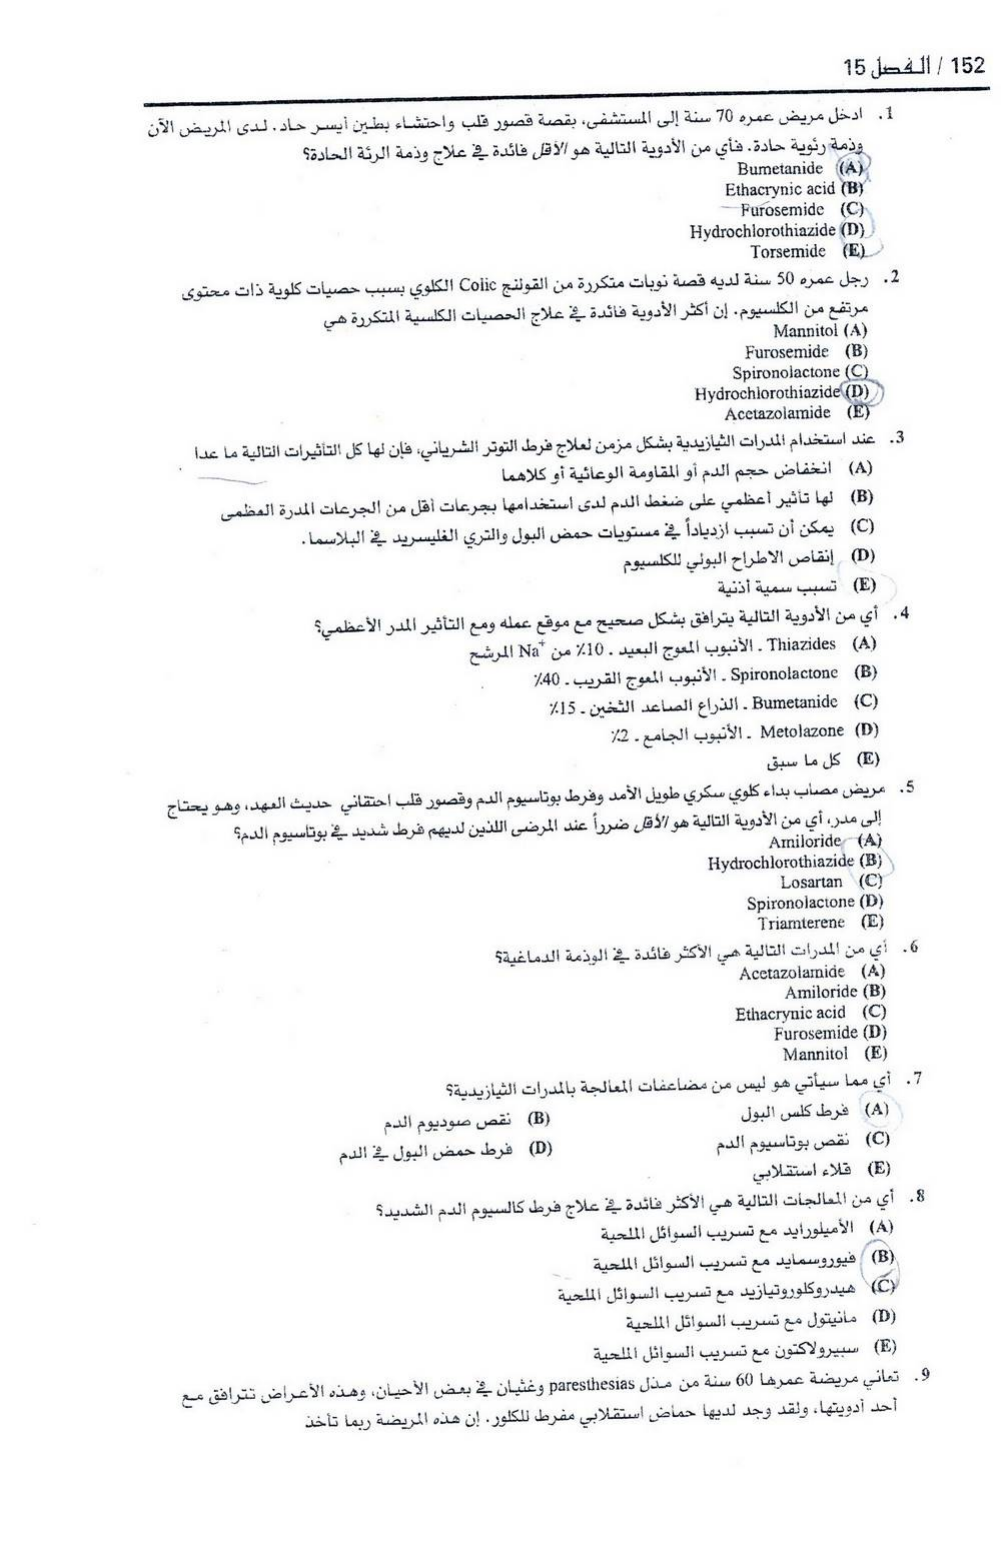 152 / الفصل 15
1. ادخل مريض عمره 70 سنة إلى المستشفى، بقصة قصور قلب واحتشاء بطين أيسر حاد. لدى المريض الآن
وذمة رئوية حادة. فأي من الأدوية التالية هو الأقل فائدة في علاج وذمة الرئة الحادة؟
(A) Bumetanide
(B) Ethacrynic acid
(C) Furosemide
(D) Hydrochlorothiazide
(E) Torsemide
2. رجل عمره 50 سنة لديه قصة نوبات متكررة من القولنج Colic الكلوي بسبب حصيات كلوية ذات محتوى
مرتفع من الكلسيوم. إن أكثر الأدوية فائدة في علاج الحصيات الكلسية المتكررة هي
(A) Mannitol
(B) Furosemide
(C) Spironolactone
(D) Hydrochlorothiazide
(E) Acetazolamide
3. عند استخدام المدرات الثيازيدية بشكل مزمن لعلاج فرط التوتر الشرياني، فإن لها كل التأثيرات التالية ما عدا
(A) انخفاض حجم الدم أو المقاومة الوعائية أو كلاهما
(B) لها تأثير أعظمي على ضغط الدم لدى استخدامها بجرعات أقل من الجرعات المدرة العظمى
(C) يمكن أن تسبب ازدياداً في مستويات حمض البول والتري الغليسريد في البلاسما.
(D) إنقاص الاطراح البولي للكلسيوم
(E) تسبب سمية أذنية
4. أي من الأدوية التالية يترافق بشكل صحيح مع موقع عمله ومع التأثير المدر الأعظمي؟
(A) Thiazides ـ الأنبوب المعوج البعيد ـ 10٪ من Na⁺ المرشح
(B) Spironolactone ـ الأنبوب المعوج القريب ـ 40٪
(C) Bumetanide ـ الذراع الصاعد الثخين ـ 15٪
(D) Metolazone ـ الأنبوب الجامع ـ 2٪
(E) كل ما سبق
5. مريض مصاب بداء كلوي سكري طويل الأمد وفرط بوتاسيوم الدم وقصور قلب احتقاني حديث العهد، وهو يحتاج
إلى مدر، أي من الأدوية التالية هو الأقل ضرراً عند المرضى اللذين لديهم فرط شديد في بوتاسيوم الدم؟
(A) Amiloride
(B) Hydrochlorothiazide
(C) Losartan
(D) Spironolactone
(E) Triamterene
6. أي من المدرات التالية هي الأكثر فائدة في الوذمة الدماغية؟
(A) Acetazolamide
(B) Amiloride
(C) Ethacrynic acid
(D) Furosemide
(E) Mannitol
7. أي مما سيأتي هو ليس من مضاعفات المعالجة بالمدرات الثيازيدية؟
(A) فرط كلس البول (B) نقص صوديوم الدم
(C) نقص بوتاسيوم الدم (D) فرط حمض البول في الدم
(E) قلاء استقلابي
8. أي من المعالجات التالية هي الأكثر فائدة في علاج فرط كالسيوم الدم الشديد؟
(A) الأميلورايد مع تسريب السوائل الملحية
(B) فيوروسمايد مع تسريب السوائل الملحية
(C) هيدروكلوروتيازيد مع تسريب السوائل الملحية
(D) مانيتول مع تسريب السوائل الملحية
(E) سبيرولاكتون مع تسريب السوائل الملحية
9. تعاني مريضة عمرها 60 سنة من مذل paresthesias وغثيان في بعض الأحيان، وهذه الأعراض تترافق مع
أحد أدويتها، ولقد وجد لديها حماض استقلابي مفرط للكلور. إن هذه المريضة ربما تأخذ